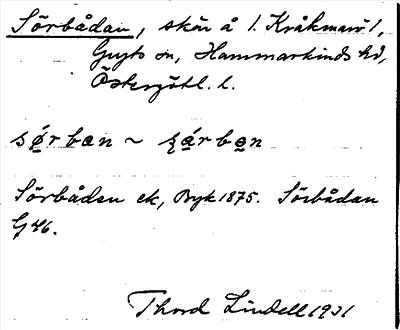 Sörbådan, skär å l. Kråkmarö l,
Gryts sn, Hammarkinds hd,
Östergötl. l.
sǫrban ~ sárban
Sörbåden ek, Byk 1875. Sörbådan
G 46.
Thord Lindell 1931